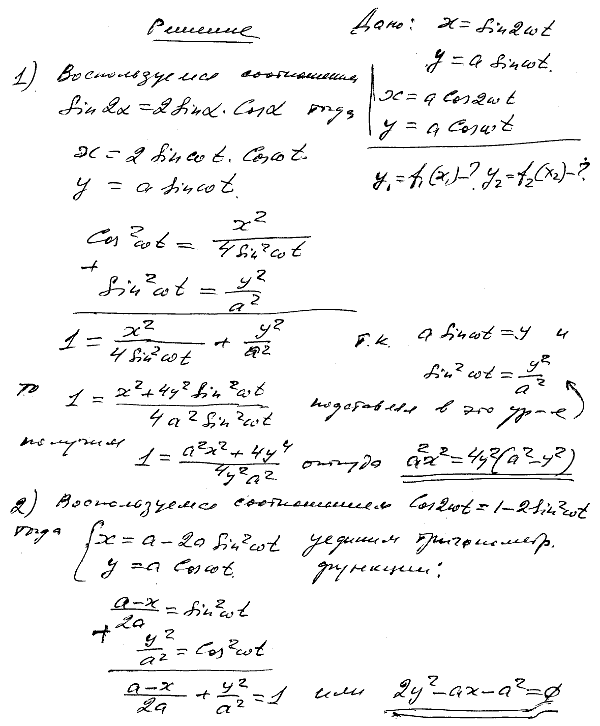 Решение
Дано: x = Sin2ωt
y = a Sinωt.
x = a Cos2ωt
y = a Cosωt
y₁ = f₁(x₁) -? y₂ = f₂(x₂) -?
1) Воспользуемся соотношением
Sin2α = 2Sinα·Cosα тогда
x = 2 Sinωt·Cosωt.
y = a Sinωt.
Cos²ωt = x²/(4Sin²ωt)
+
Sin²ωt = y²/a²
1 = x²/(4Sin²ωt) + y²/a² т.к. a Sinωt = y и
Sin²ωt = y²/a²
то 1 = (x² + 4y² Sin²ωt)/(4a² Sin²ωt) подставляя в это ур-е
получим 1 = (a²x² + 4y⁴)/(4y²a²) откуда a²x² = 4y²(a² - y²)
2) Воспользуемся соотношением Cos2ωt = 1 - 2Sin²ωt
тогда { x = a - 2a Sin²ωt уединим тригонометр.
y = a Cosωt. функции:
(a-x)/2a = Sin²ωt
+
y²/a² = Cos²ωt
(a-x)/2a + y²/a² = 1 или 2y² - ax - a² = 0